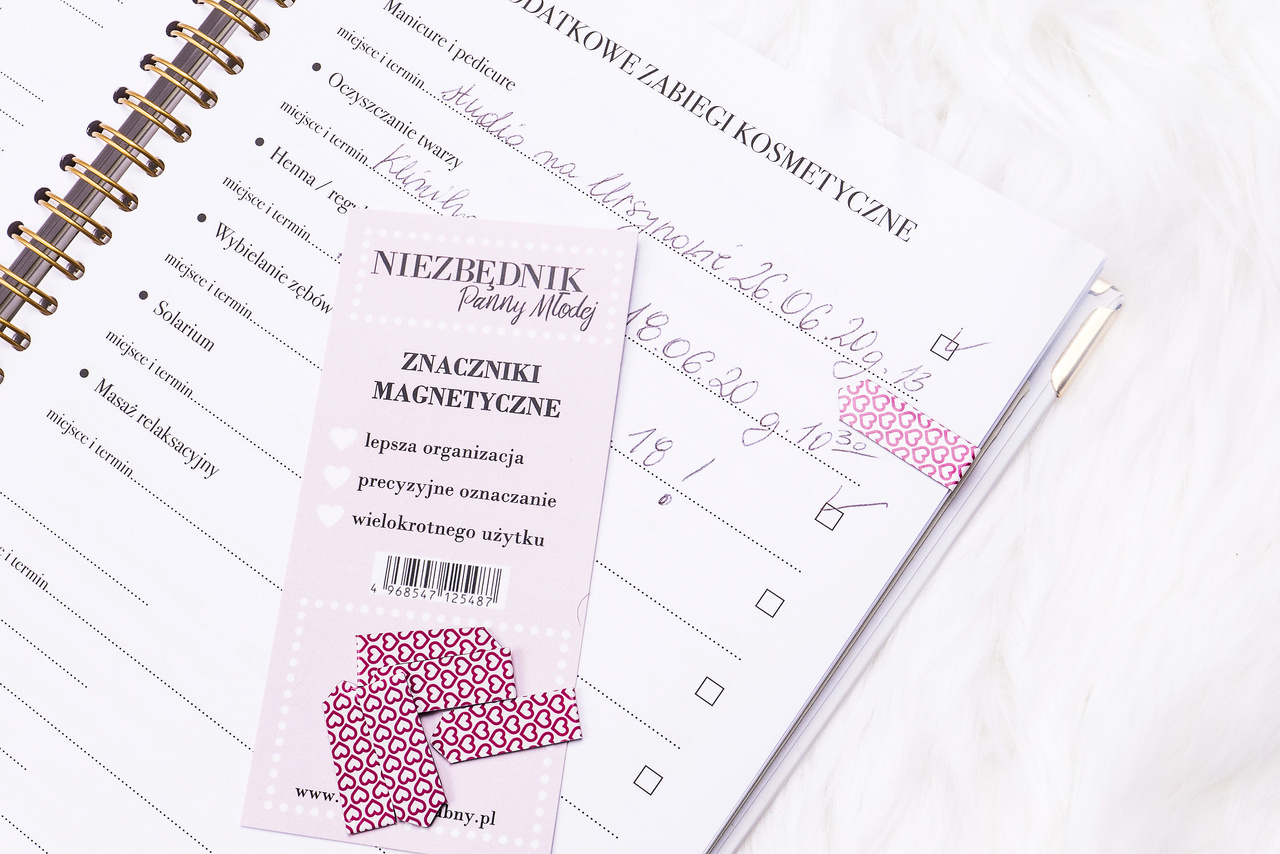 DODATKOWE ZABIEGI KOSMETYCZNE
Manicure i pedicure
miejsce i termin studio na Ursynowie 26.06.20 g. 13
• Oczyszczanie twarzy
miejsce i termin Klinika 18 06 20 g. 10 30
• Henna /
miejsce i termin 19 !
• Wybielanie zębów
miejsce i termin
• Solarium
miejsce i termin
• Masaż relaksacyjny
miejsce i termin
i termin
NIEZBĘDNIK
Panny Młodej
ZNACZNIKI
MAGNETYCZNE
lepsza organizacja
precyzyjne oznaczanie
wielokrotnego użytku
4 968547 125487
www.
bny.pl